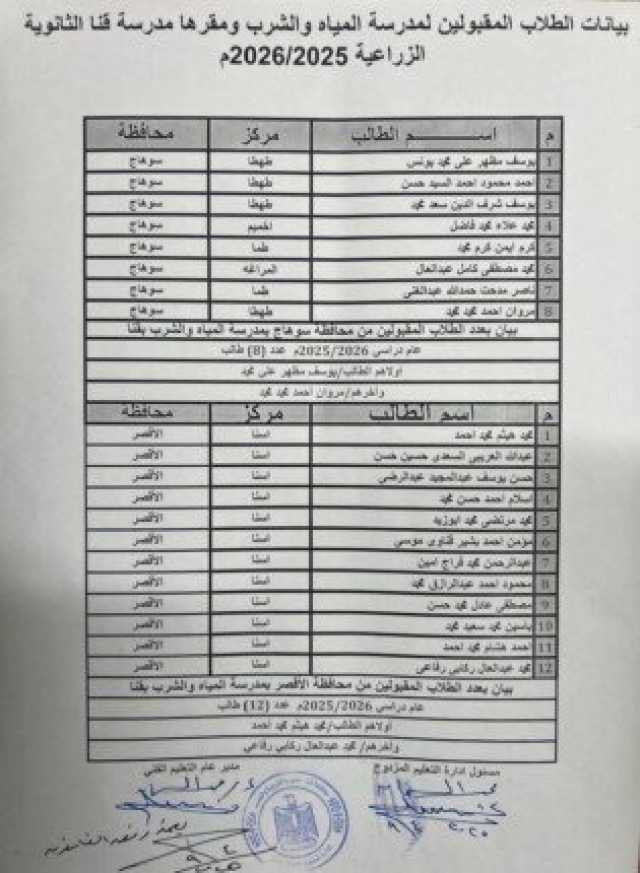 بيانات الطلاب المقبولين لمدرسة المياه والشرب ومقرها مدرسة قنا الثانوية
الزراعية 2026/2025م
م اسم الطالب مركز محافظة
1 يوسف مظهر على محمد يونس طهطا سوهاج
2 احمد محمود احمد السيد حسن طهطا سوهاج
3 يوسف شرف الدين سعد محمد طهطا سوهاج
4 محمد علاء محمد فاضل اخميم سوهاج
5 كرم ايمن كرم محمد طما سوهاج
6 محمد مصطفى كامل عبدالعال المراغه سوهاج
7 ناصر مدحت حمدالله عبدالغنى طما سوهاج
8 مروان احمد محمد محمد طهطا سوهاج
بيان بعدد الطلاب المقبولين من محافظة سوهاج بمدرسة المياه والشرب بقنا
عام دراسي 2025/2026م عدد (8) طالب
اولاهم الطالب/يوسف مظهر على محمد
وآخرهم/مروان احمد محمد محمد
م اسم الطالب مركز محافظة
1 محمد هيثم محمد احمد اسنا الأقصر
2 عبدالله العريبى السعدي حسين حسن اسنا الأقصر
3 حسن يوسف عبدالمجيد عبدالرضي اسنا الأقصر
4 اسلام احمد حسن محمد اسنا الأقصر
5 محمد مرتضى محمد ابوزيد اسنا الأقصر
6 مؤمن احمد بشير قناوى موسي اسنا الأقصر
7 عبدالرحمن محمد فراج امين اسنا الأقصر
8 محمود احمد عبدالرازق محمد اسنا الأقصر
9 مصطفى عادل محمد حسن اسنا الأقصر
10 ياسين محمد سعيد محمد اسنا الأقصر
11 احمد هشام محمد احمد اسنا الأقصر
12 محمد عبدالعال ركابي رفاعى اسنا الأقصر
بيان بعدد الطلاب المقبولين من محافظة الأقصر بمدرسة المياه والشرب بقنا
عام دراسي 2025/2026م عدد (12) طالب
اولاهم الطالب/محمد هيثم محمد احمد
وآخرهم/ محمد عبدالعال ركابي رفاعى
مسئول ادارة التعليم المزدوج
مدير عام التعليم الفني